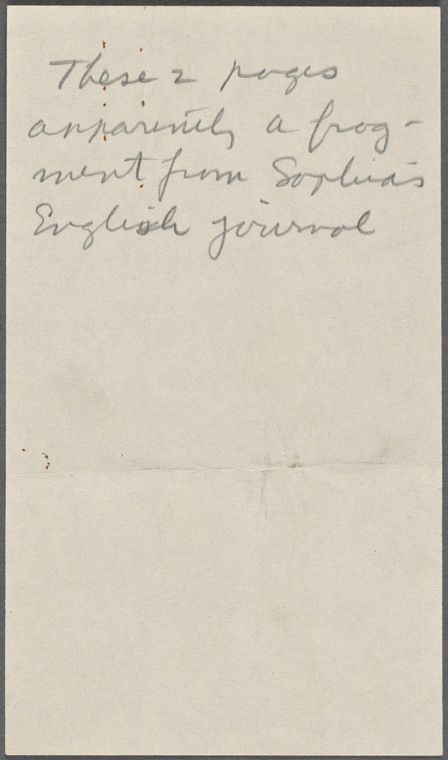 These 2 pages
apparently a frag-
ment from Sophia's
English journal